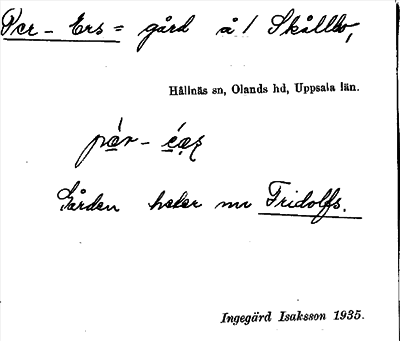 Per-Ers = gård å/ Skållbo,
Hållnäs sn, Olands hd, Uppsala län.
Gården heter nu Fridolfs.
Ingegärd Isaksson 1935.